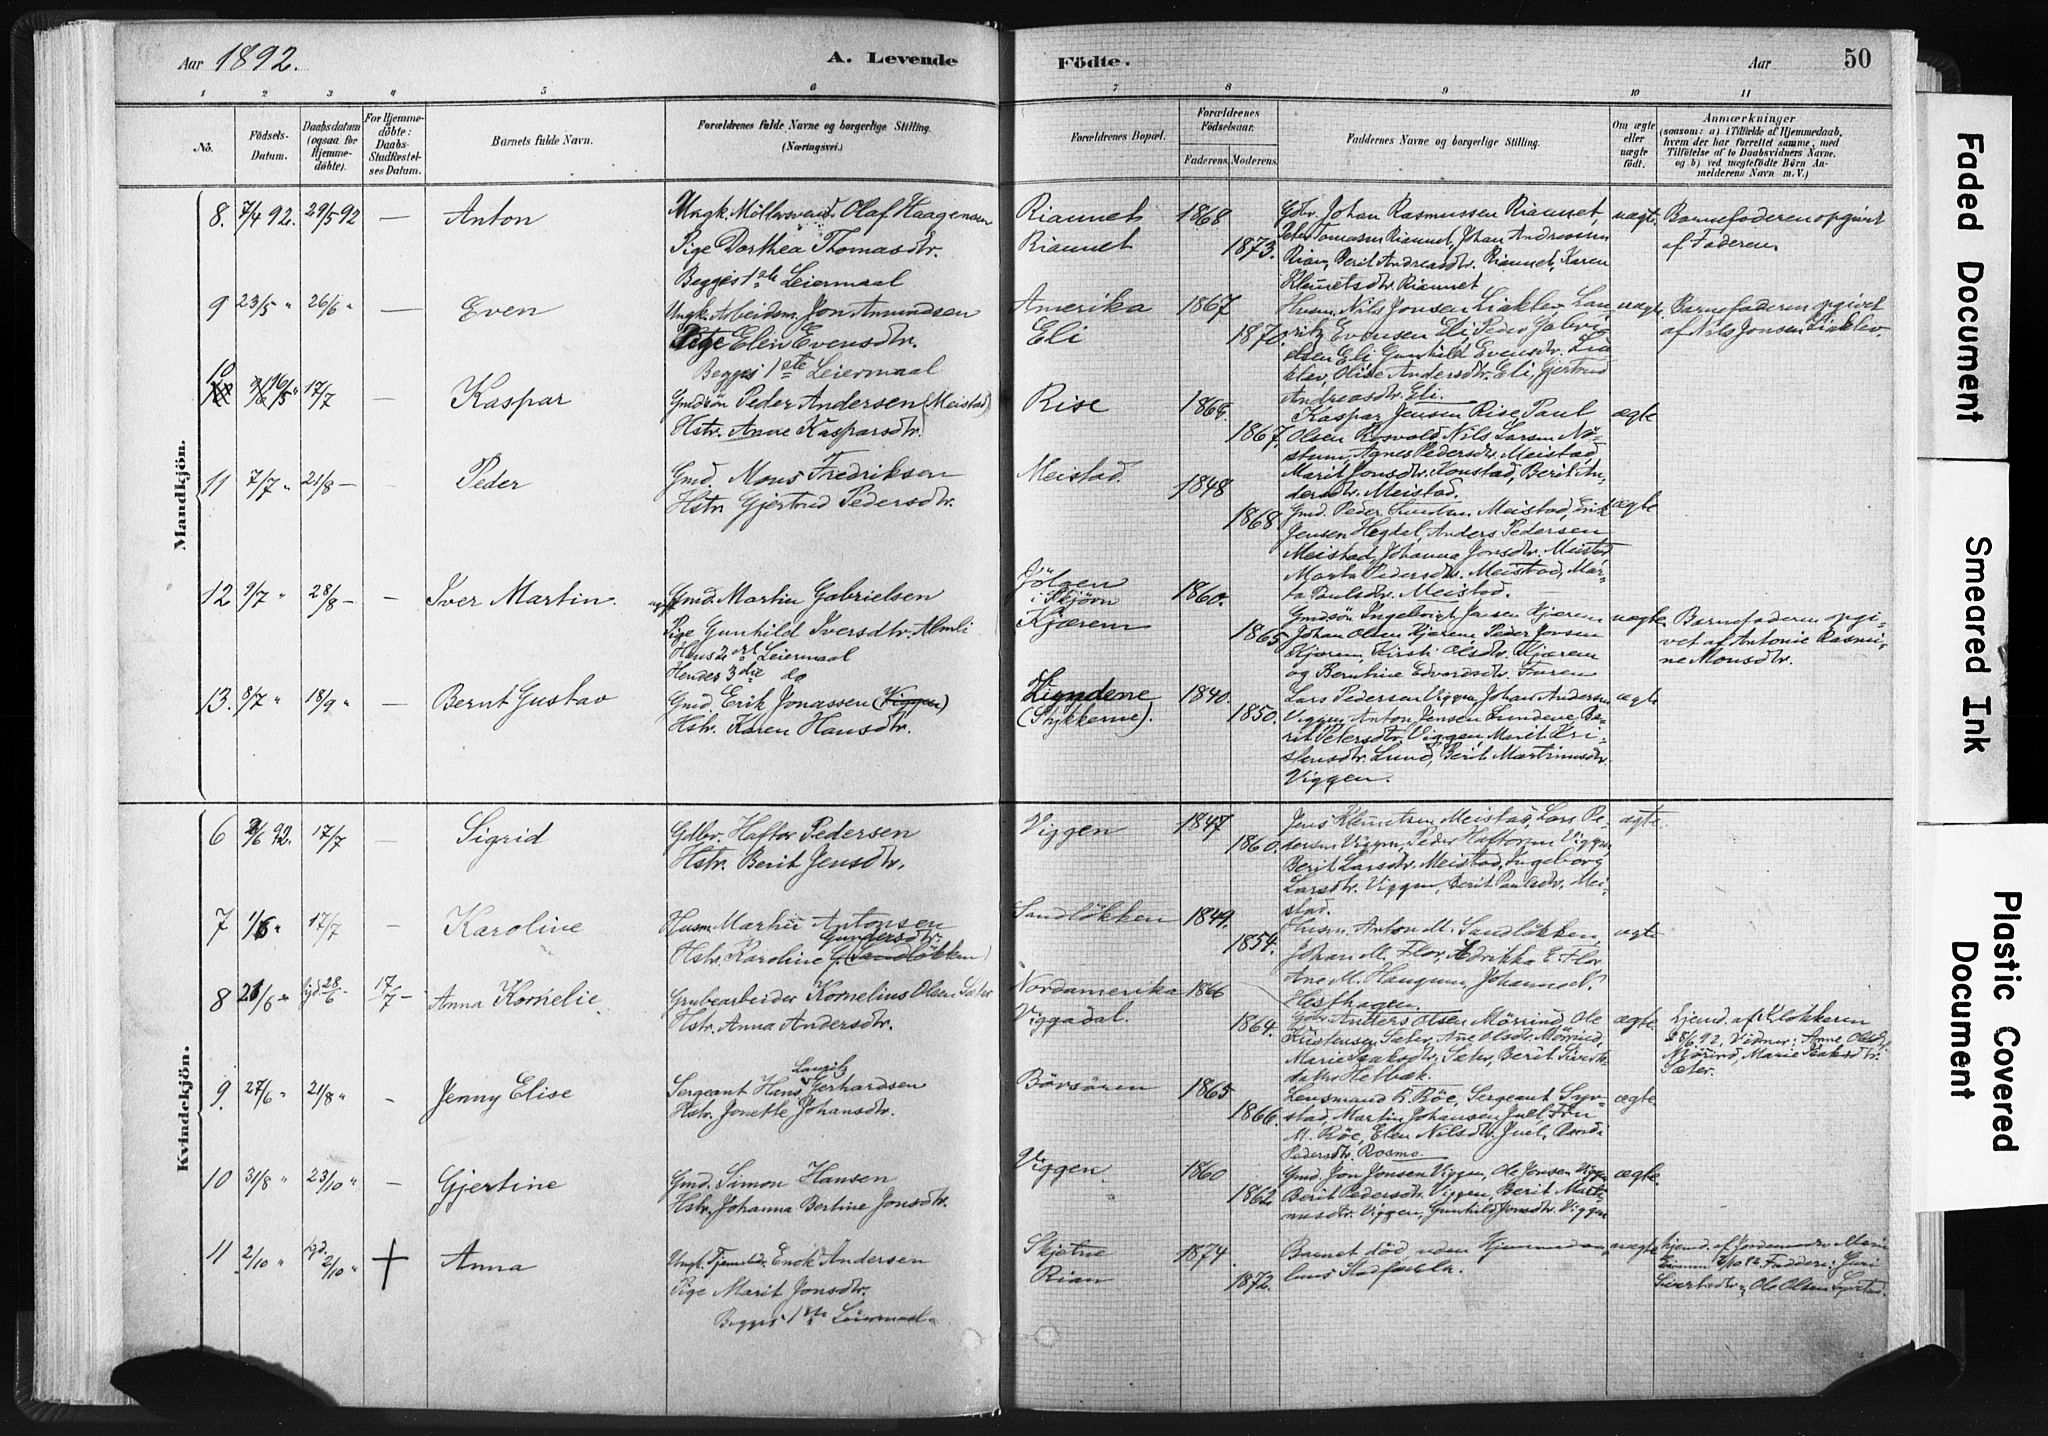 Aar 1892.
A. Levende Födte.
Aar
50
1 2 3 4 5 6 7 8 9 10 11
Nô.
Födsels-Datum.
Daabsdatum (ogsaa for Hjemmedöbte).
For Hjemmedöbte: Daabs-Stadfæstelses Datum.
Barnets fulde Navn.
Forældrenes fulde Navne og borgerlige Stilling. (Næringsvei.)
Forældrenes Bopæl.
Forældrenes Födselsaar.
Faderens.
Moderens.
Faddernes Navne og borgerlige Stilling.
Om ægte eller uægte födt.
Anmærkninger
(saasom: a) i Tilfælde af Hjemmedaab,
hvem der har forrettet samme, med
Tilföielse af to Daabsvidners Navne,
og b) ved uægtefödte Börn Anmelderens Navn m. V.)
Mandkjön.
8. 7/4 92. 29/5 92 — Anton
Ungk. Möllersvend Olaf Haagensen
Pige Dorthea Thomasdtr.
Begges 1ste Leiermaal
Riaunet 1868
Riaunet 1873.
Gdbr. Johan Rasmussen Riaunet,
Peter Tomasen Riaunet, Johan Andreassen
Rian, Berit Andreasdtr. Riaunet, Karen
Klemetsdtr. Riaunet
uægte.
Barnefaderen opgivet
af Faderen
9 23/5 " 26/6 " — Even
Ungk. Arbeidsm. Jon Amundsen
Pige Elen Evensdtr.
Begges 1ste Leiermaal
Amerika 1867
Eli 1870.
Husm. Nils Jonsen Liaklev, Lau-
ritz Evensen Eli, Peder Gabri-
elsen Eli, Gunhild Evensdtr. Lia-
klev, Olise Andersdtr. Eli, Gjertrud
Andreasdtr. Eli.
uægte
Barnefaderen opgivet
af Nils Jonsen Liaklev.
10 16/5 " 17/7 — Kaspar
Gmdsön Peder Andersen (Meistad)
Hstr. Anne Kaspersdtr.
Rise 1865.
1867.
Kaspar Jensen Rise, Paul
Olsen Rosvold, Nils Larsen Nö-
stum, Agnes Pedersdtr. Meistad,
Marit Jonsdtr. Konstad, Berit An-
dersdtr. Meistad.
ægte
11 7/7 " 21/8 — Peder
Gmd. Mons Fredriksen
Hstr. Gjertrud Pedersdtr.
Meistad. 1848
1868.
Gmd. Peder Meistad, Erik
Jensen Hegdal, Anders Pedersen
Meistad, Johanna Jonsdtr. Meistad,
Marta Pedersdtr. Meistad, Mar-
ta Paulsdtr. Meistad.
ægte
12 9/7 " 28/8 — — Iver Martin.
Gmd. Martin Gabrielsen
Pige Gunhild Iversdtr. Almli
Hans 2det Leiermaal
Hendes 3die do
Jölgen
i Skjörn 1860.
Kjærem 1865
Gmdsön Ingebrigt Jensen Kjærem
Johan Olsen Kjærem, Peder Jonsen
Kjærem, Kirsti Olsdtr. Kjærem
og Berntine Edvardsdtr. Furen
uægte.
Barnefaderen opgi-
vet af Antonie Rasmi-
ne Monsdtr.
13. 8/7 " 18/9 " — Bernt Gustav
Gmd. Erik Jonassen (Viggen)
Hstr. Karen Hansdtr.
(Stykkerne). 1840.
1850.
Lars Pedersen Viggen, Johan Andersen
Viggen, Anton Jensen Lundene, Be-
rit Petersdtr. Viggen, Marit Kri-
stensdtr. Lund, Berit Martinusdtr.
Viggen.
ægte
Kvindekjön.
6 2/6 92. 17/7 — Sigrid
Gdbr. Haftor Pedersen
Hstr. Berit Jensdtr.
Viggen 1847
1860.
Jens Klemetsen Meistad, Lars Pe-
dersen Viggen, Peder Haftorsen Viggen
Berit Larsdtr. Meistad, Ingeborg
Larsdtr. Viggen, Berit Paulsdtr. Mei-
stad.
ægte.
7 1/6 " 17/7 — Karoline
Husm. Martin Antonsen
Gundersdtr.
Hstr. Karoline G. Sandlökken)
Sandlökken 1849.
1854.
Husm. Anton M. Sandlökken,
Johan M. Flor, Adrikka E. Flor
Ane M. Haugum, Johanna N.
Hesthagen.
ægte
8 21/6 " hjd. 28/6 - 17/7 — Anna Kornelie
Grubearbeider Kornelius Olsen Sæter
Hstr. Anna Andersdtr.
Nordamerika 1866
Viggadal. 1864.
Gdbr. Anders Olsen Mörrind, Ole
Kristensen Sæter, Ane Olsdtr. Mörrind,
Marie Isaksdtr. Sæter, Berit
Helbæk.
ægte.
Hjemd. af Klokkeren
28/6 92. Vidner: Anne Olsdtr.
Mörrind, Marie Isaksdtr.
Sæter.
9. 27/6 " 21/8 " - Jenny Elise
Lauritz
Sergeant Hans Gerhardsen
Hstr. Jonette Johansdtr.
Börsören 1865
1866.
Lensmand R. Röe, Sergeant Syv-
stad, Martin Johansen Juel, Fru
M. Röe, Elen Nilsdtr. Juel, Randi
Pedersdtr. Rosmo.
ægte
10 31/8 " 23/10 " - Gjertine
Gmd. Simon Hansen
Hstr. Johanna Bertine Jonsdtr.
Viggen 1860
1862
Gmd. Jon Jonsen Viggen, Ole Jonsen Viggen
Berit Pedersdtr. Viggen, Berit Marti-
nusdtr. Viggen, Gunhild Jonsdtr. Viggen
ægte.
11 2/10 " hjd. 2/10 " + Anna
Ungk. Tjenestedr. Enok Andersen
Pige Marit Jonsdtr.
Begges 1ste Leiermaal
Skjetne 1874.
Rian 1872.
Barnet död uden Hjemmedaa-
bens Stadfæstelse.
uægte
Hjemd. af Jordemoder Marie
2/10 92. Faddere: Guri
Siverts­dtr., Ole Olsen
Faded Document
Smeared Ink
Plastic Covered Document